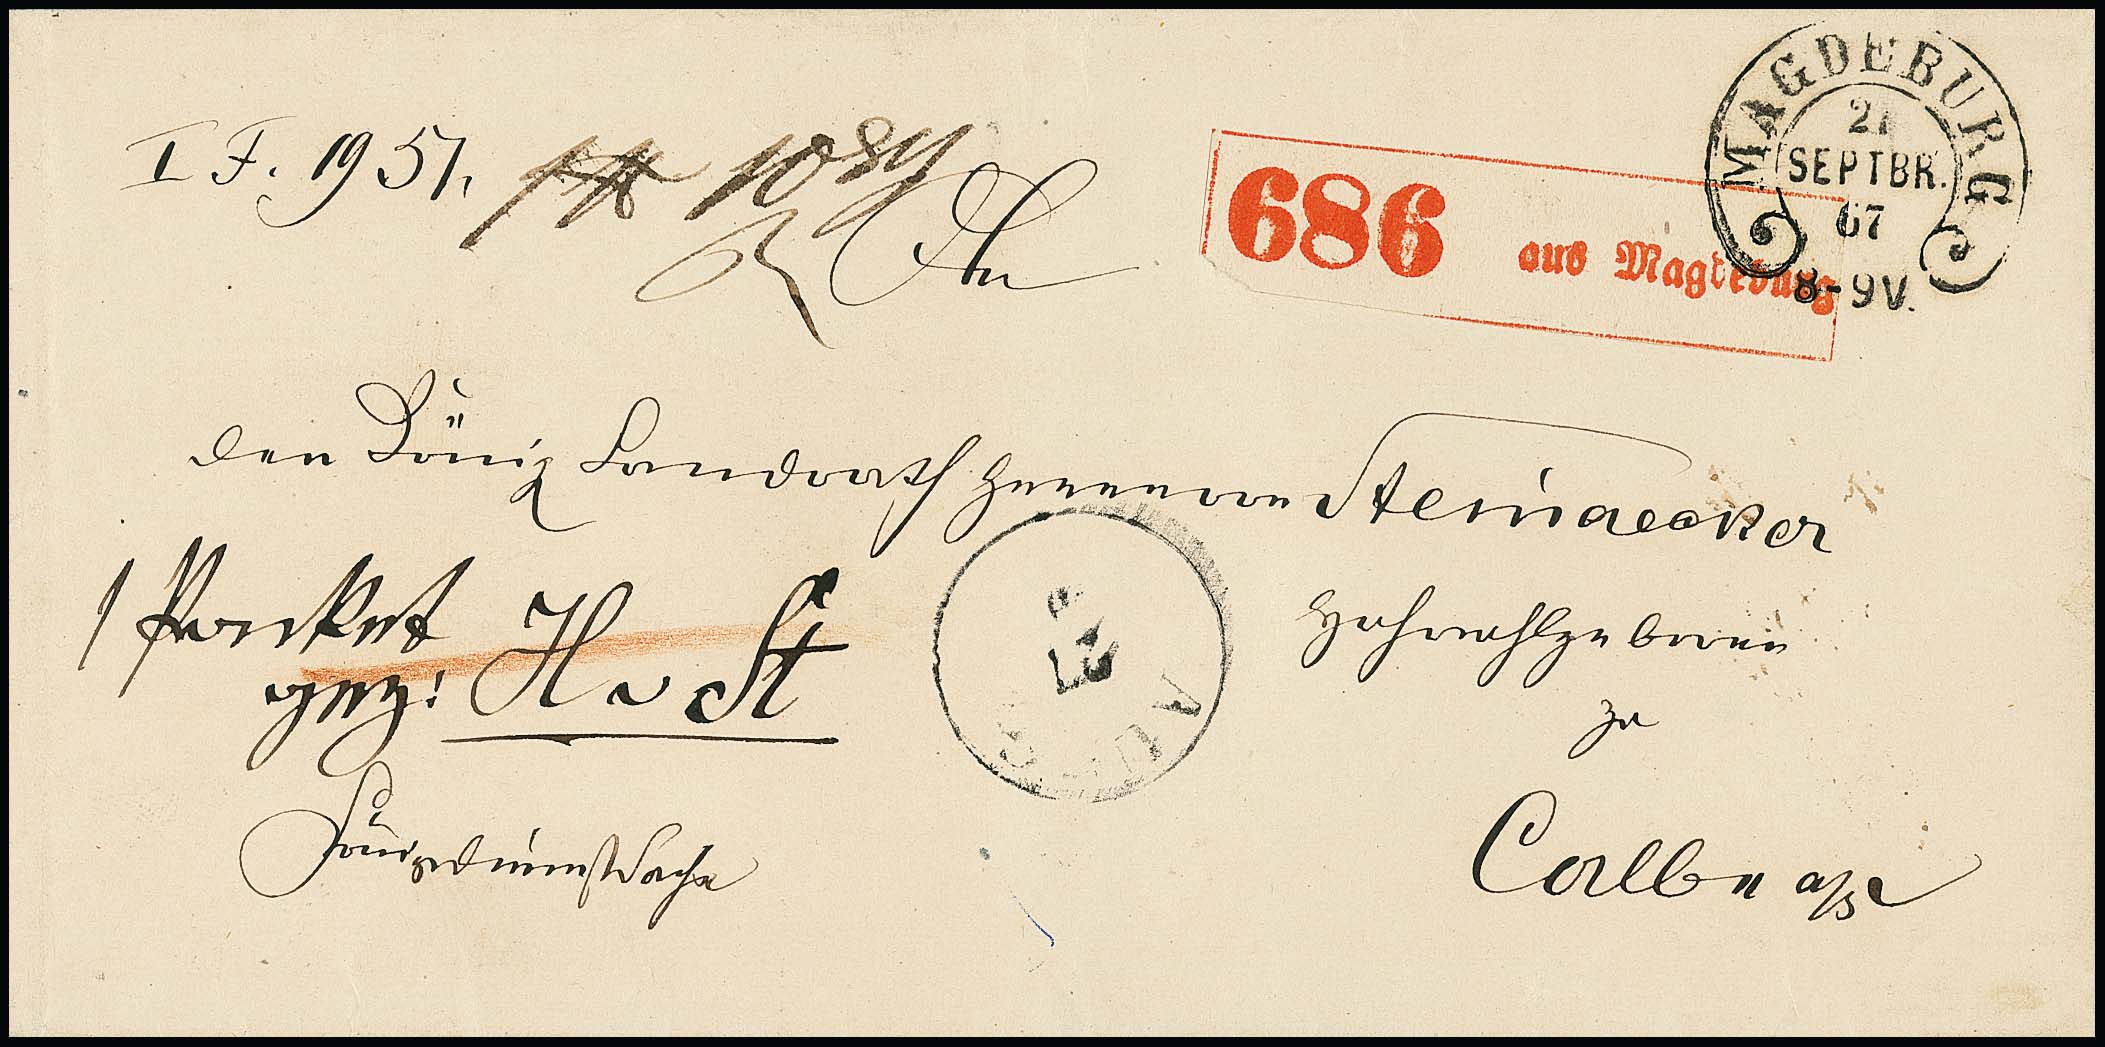 I F. 1951.
An
686 aus Magdeburg
MAGDEBURG
21
SEPTBR.
67
8-9 V.
den König Landrath Herrn von Steinaecker
Hochwohlgeboren
zu
Calbe a/S
1 Packet
gez: H v St
AUSG
21